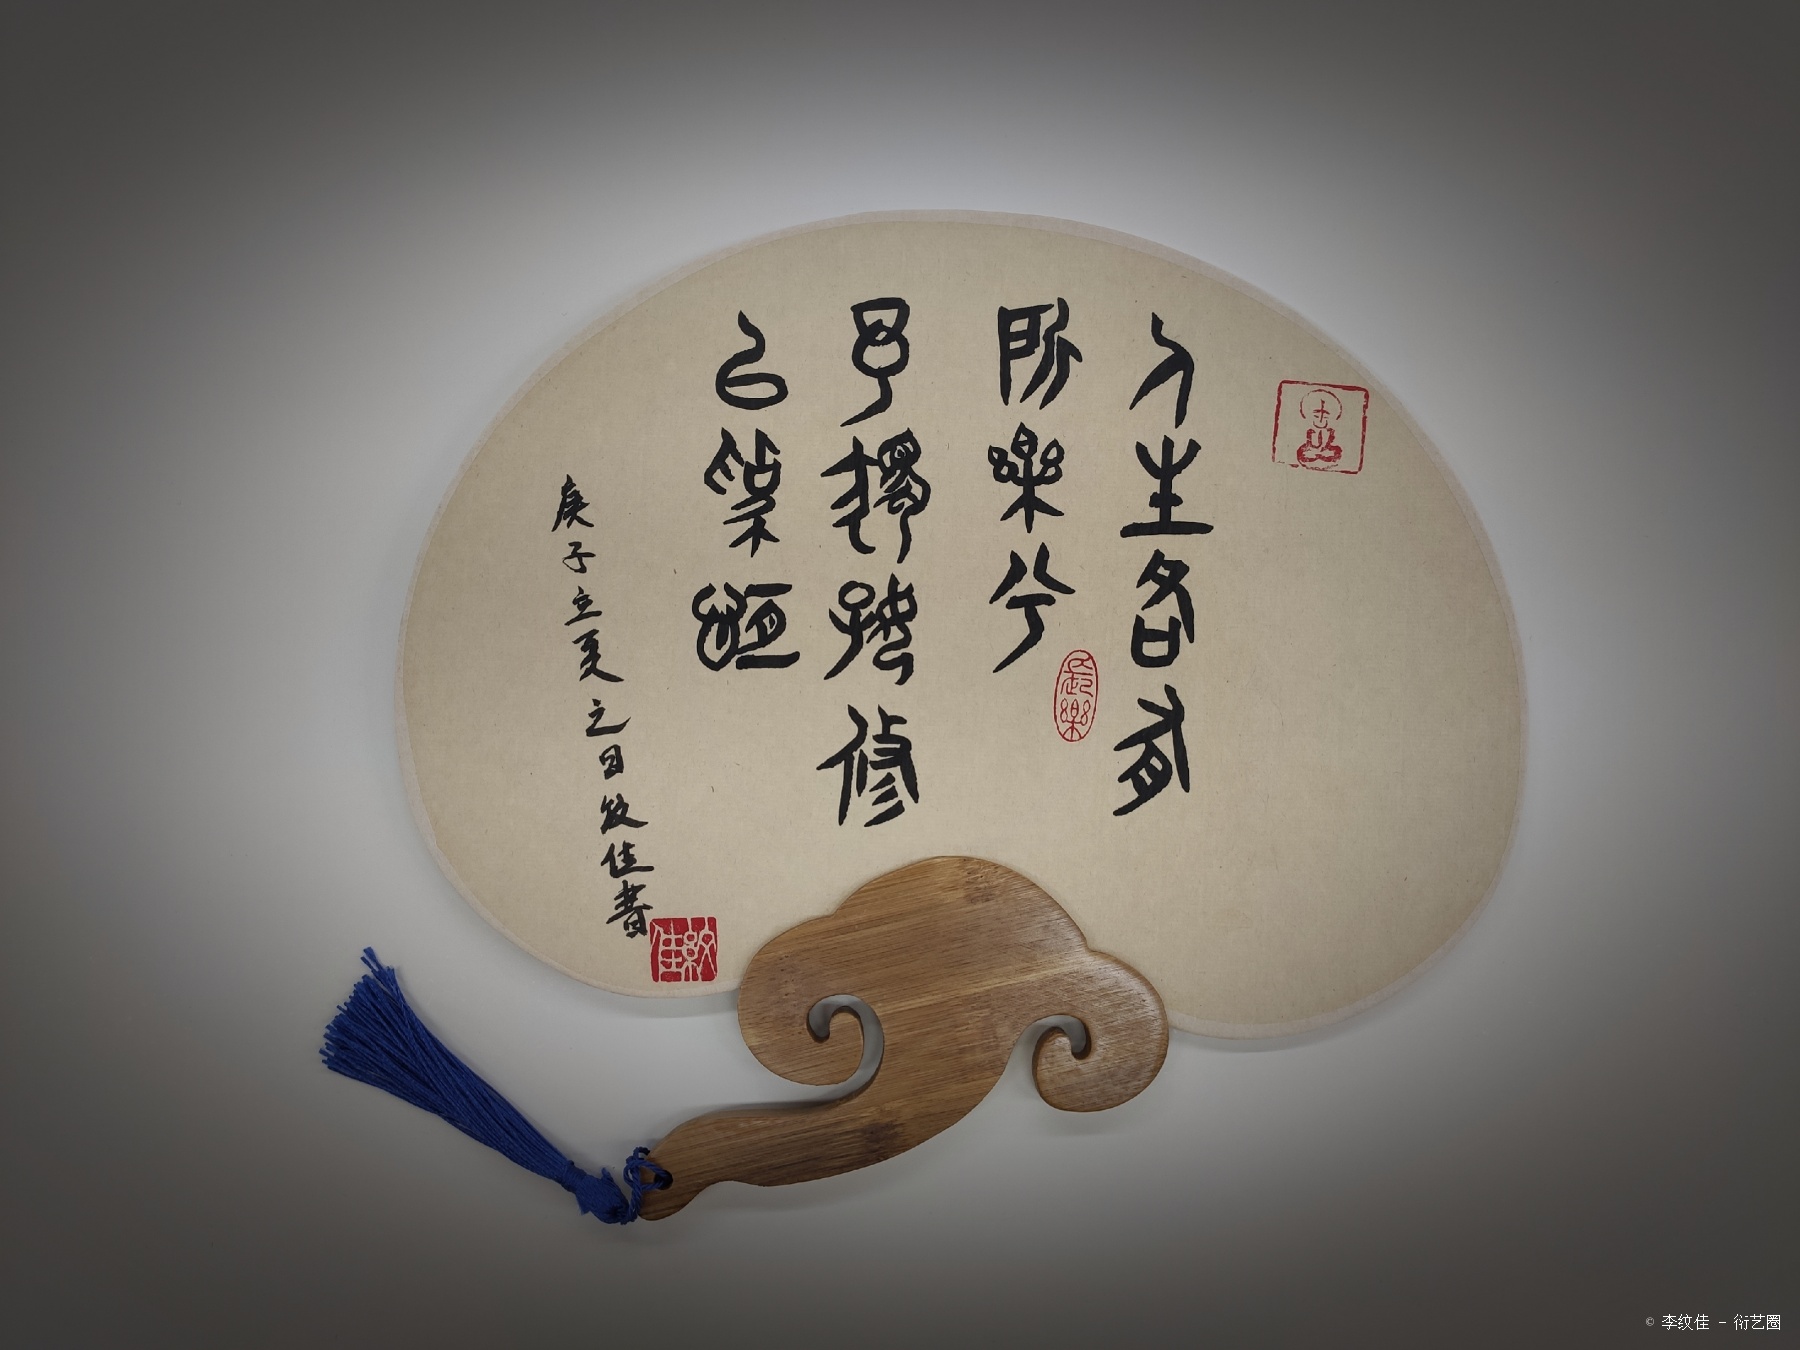 人生各有
所樂兮
予獨好修
以為恆
庚子立夏之日紋佳書
長樂
紋佳
© 李纹佳 - 衍艺圈